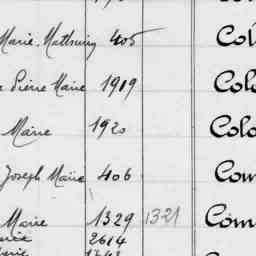 Marie Mathurin 405 Col
Pierre Marie 1919 Colo
Marie 1920 Colo
Joseph Marie 406 Com
Marie 1329 1321 Com
2614